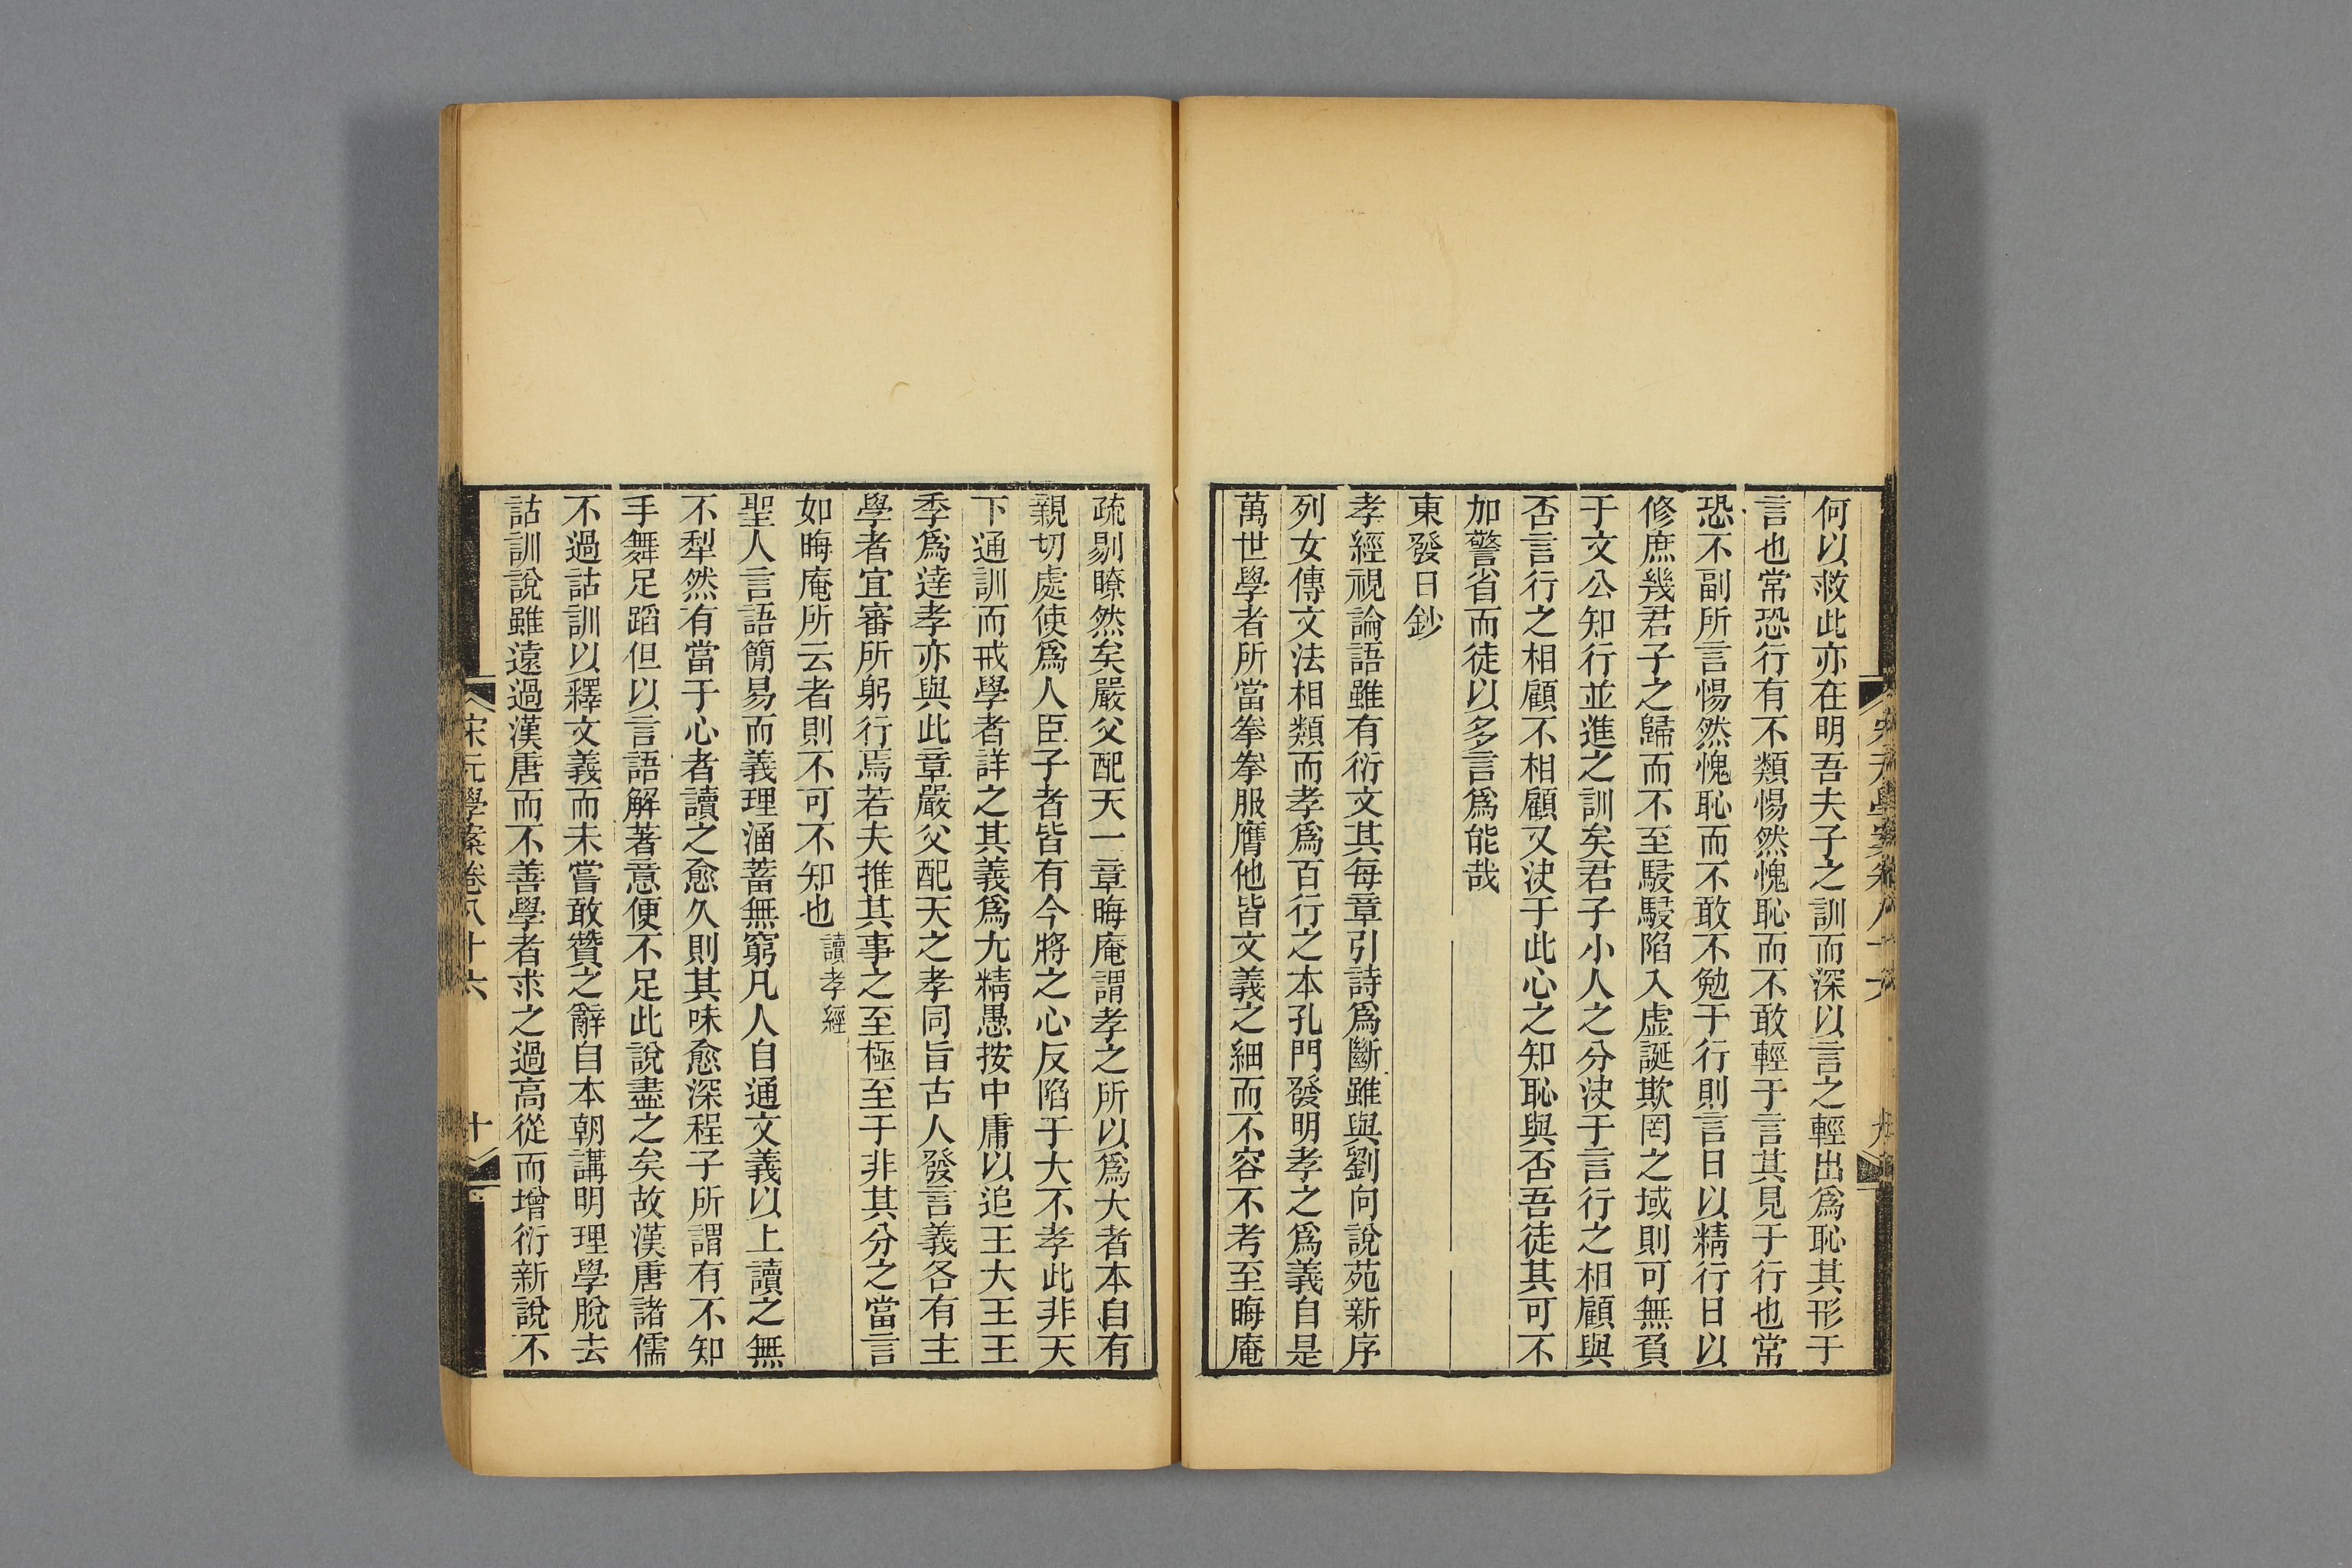 宋元學案卷八十六
九
何以救此亦在明吾夫子之訓而深以言之輕出爲恥其形于
言也常恐行有不類惕然愧恥而不敢輕于言其見于行也常
恐不副所言惕然愧恥而不敢不勉于行則言日以精行日以
修庶幾君子之歸而不至駸駸陷入虛誕欺罔之域則可無負
于文公知行並進之訓矣君子小人之分決于言行之相顧與
否言行之相顧不相顧又決于此心之知恥與否吾徒其可不
加警省而徒以多言爲能哉
東發日鈔
孝經視論語雖有衍文其每章引詩爲斷雖與劉向說苑新序
列女傳文法相類而孝爲百行之本孔門發明孝之爲義自是
萬世學者所當拳拳服膺他皆文義之細而不容不考至晦庵
疏剔瞭然矣嚴父配天一章晦庵謂孝之所以爲大者本自有
親切處使爲人臣子者皆有今將之心反陷于大不孝此非天
下通訓而戒學者詳之其義爲尤精愚按中庸以追王大王王
季爲達孝亦與此章嚴父配天之孝同旨古人發言義各有主
學者宜審所躬行焉若夫推其事之至極至于非其分之當言
如晦庵所云者則不可不知也讀孝經
聖人言語簡易而義理涵蓄無窮凡人自通文義以上讀之無
不犁然有當于心者讀之愈久則其味愈深程子所謂有不知
手舞足蹈但以言語解著意便不足此說盡之矣故漢唐諸儒
不過詁訓以釋文義而未嘗敢贊之辭自本朝講明理學脫去
詁訓說雖遠過漢唐而不善學者求之過高從而增衍新說不
宋元學案卷八十六
十